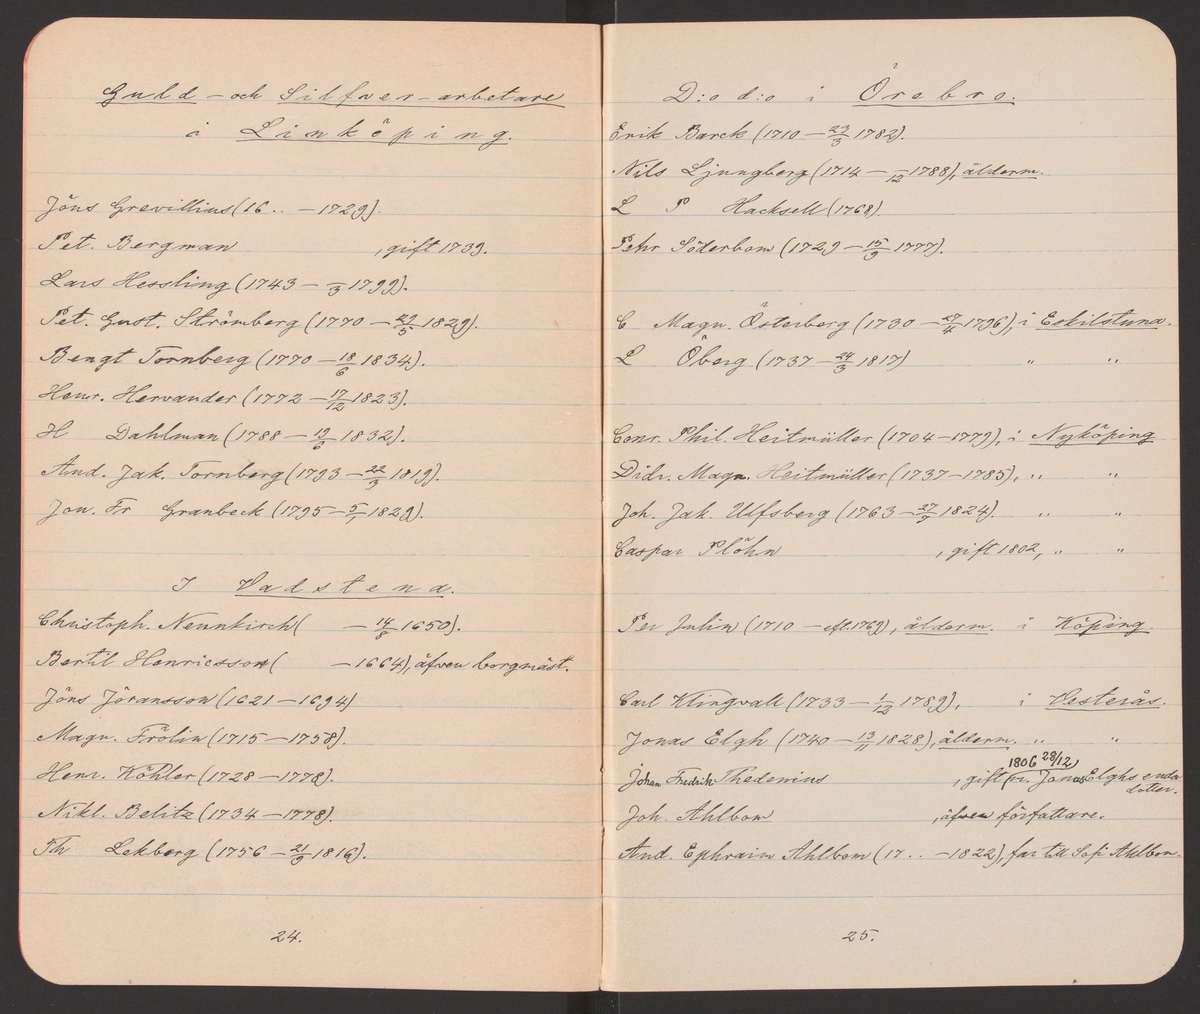 Guld- och Silfver-arbetare
i Linköping.
Jöns Grevillius (16.. – 1729).
Pet. Bergman , gift 1739.
Lars Hessling (1743 – –/3 1799).
Pet. Gust. Strömberg (1770 – 29/5 1829).
Bengt Tornberg (1770 – 18/6 1834).
Henr. Hervander (1772 – 17/12 1823).
H Dahlman (1788 – 19/6 1832).
And. Jak. Tornberg (1793 – 22/3 1819).
Jon. Fr Granbeck (1795 – 5/11 1829).
I Vadstena.
Christoph. Neunkirch ( – 14/8 1650).
Bertil Henricsson ( – 1664), äfven borgmäst.
Jöns Jöransson (1621 – 1694)
Magn. Frölin (1715 – 1758).
Henr. Köhler (1728 – 1778).
Nikl. Belitz (1734 – 1778).
Th Lekberg (1756 – 21/9 1816).
24.
D:o d:o i Örebro.
Erik Barck (1710 – 23/3 1782).
Nils Ljungberg (1714 – –/12 1788), ålderm.
L P Hacksell (1768).
Pehr Söderbom (1729 – 15/9 1777).
C Magn. Österberg (1730 – 27/4 1796), i Eskilstuna.
L Öberg (1737 – 24/3 1817) " "
Conr. Phil. Heitmüller (1704 – 1779), i Nyköping
Didr. Magn. Heitmüller (1737 – 1785), " "
Joh. Jak. Ulfsberg (1763 – 27/9 1824). " "
Caspar Plöhn , gift 1802, " "
Per Julin (1710 – eft. 1769), ålderm. i Köping.
Carl Klingvall (1733 – 1/12 1789), i Vesterås.
Jonas Elgh (1740 – 13/11 1828), ålderm. " "
1806 28/12)
Johan Fredrik Thedenius , gift (m. Jonas Elghs enda
dotter.
Joh. Ahlbom , äfven författare.
And. Ephraim Ahlbom (17.. – 1822), far till Sofi Ahlbom.
25.